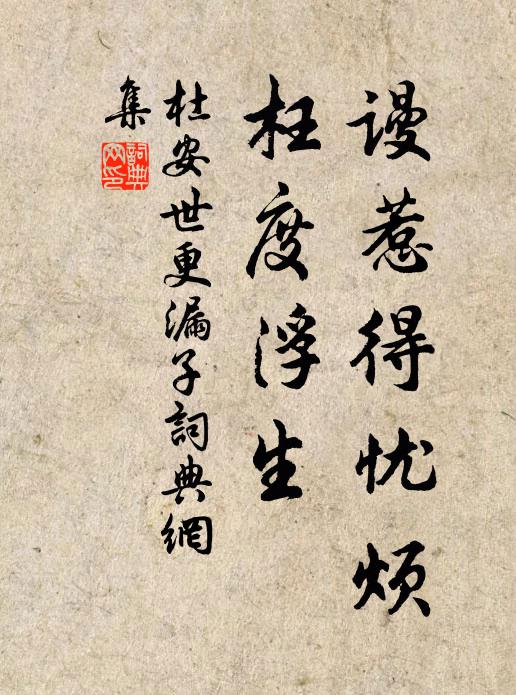 谩惹得忧烦
枉度浮生
杜安世更漏子詞典網
集
詞典
网印